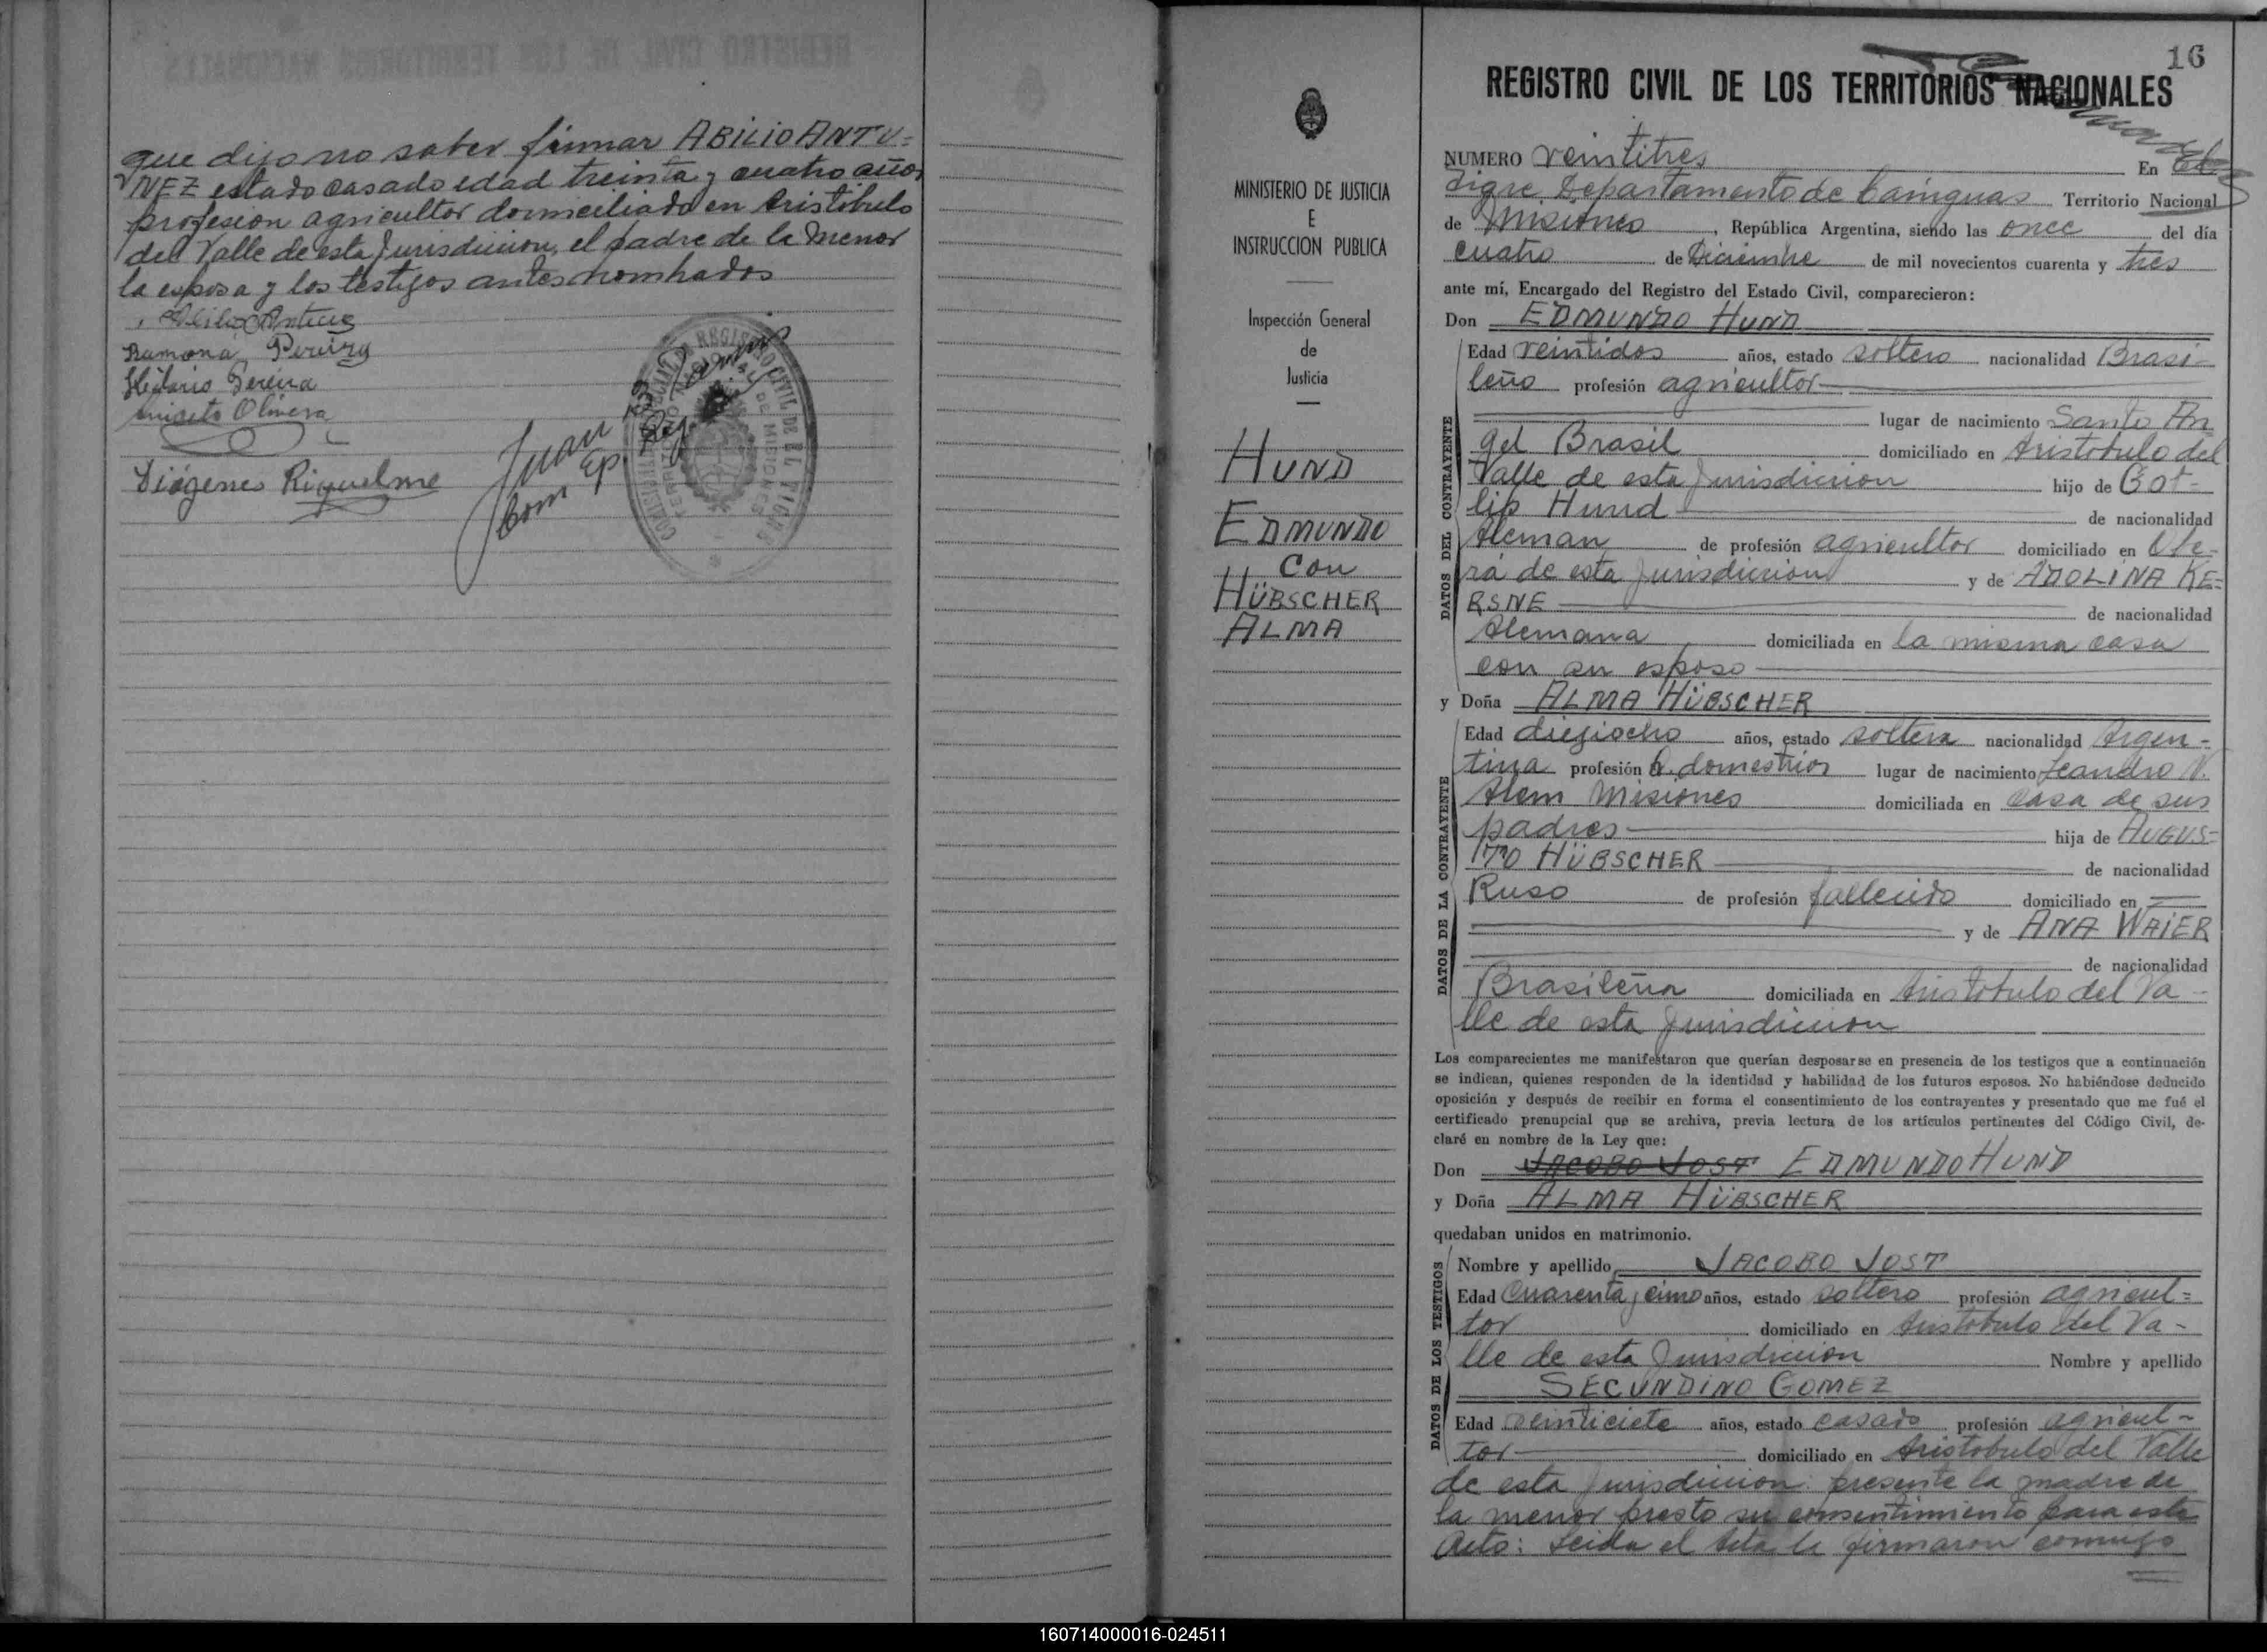 que dijo no saber firmar ABILIO ANTU=
NEZ estado casado edad treinta y cuatro años
profesion agricultor domiciliado en Aristobulo
del Valle de esta Jurisdiccion, el padre de la menor
la esposa y los testigos antes nombrados
Ramona Pereira
Hilario Pereira
aniceto Olivera
Diógenes Riquelme
Juan
Com Ep
16
REGISTRO CIVIL DE LOS TERRITORIOS NACIONALES
MINISTERIO DE JUSTICIA
E
INSTRUCCION PUBLICA
Inspección General
de
Justicia
HUND
EDMUNDO
Con
HÜBSCHER
ALMA
NUMERO veintitres En El
Tigre Departamento de Cainguas Territorio Nacional
de Misiones, República Argentina, siendo las once del día
cuatro de Diciembre de mil novecientos cuarenta y tres
ante mí, Encargado del Registro del Estado Civil, comparecieron:
Don EDMUNDO HUND
DATOS DEL CONTRAYENTE
Edad veintidos años, estado soltero nacionalidad Brasi-
leño profesión agricultor
lugar de nacimiento Santo An
gel Brasil domiciliado en Aristobulo del
Valle de esta Jurisdiccion hijo de Got-
lip Hund de nacionalidad
Aleman de profesión agricultor domiciliado en Obe-
rá de esta Jurisdiccion y de ADOLINA KE=
RSNE de nacionalidad
Alemana domiciliada en la misma casa
con su esposo
y Doña ALMA HÜBSCHER
DATOS DE LA CONTRAYENTE
Edad dieziocho años, estado soltera nacionalidad Argen-
tina profesión Q. domesticos lugar de nacimiento Leandro N.
Alem Misiones domiciliada en casa de sus
padres hija de AUGUS=
TO HÜBSCHER de nacionalidad
Ruso de profesión fallecido domiciliado en
y de ANA WAIER
de nacionalidad
Brasileña domiciliada en Aristobulo del Va-
lle de esta Jurisdiccion
Los comparecientes me manifestaron que querían desposarse en presencia de los testigos que a continuación
se indican, quienes responden de la identidad y habilidad de los futuros esposos. No habiéndose deducido
oposición y después de recibir en forma el consentimiento de los contrayentes y presentado que me fué el
certificado prenupcial que se archiva, previa lectura de los artículos pertinentes del Código Civil, de-
claré en nombre de la Ley que:
Don JACOBO JOST EDMUNDO HUND
y Doña ALMA HÜBSCHER
quedaban unidos en matrimonio.
DATOS DE LOS TESTIGOS
Nombre y apellido JACOBO JOST
Edad Cuarenta y cinco años, estado soltero profesión agricul=
tor domiciliado en Aristobulo del Va-
lle de esta Jurisdiccion Nombre y apellido
SECUNDINO GOMEZ
Edad veinticiete años, estado casado profesión agricul-
tor domiciliado en Aristobulo del Valle
de esta Jurisdiccion: presente la madre de
la menor presto su consentimiento para este
Acto: Leida el Acta la firmaron comigo
160714000016-024511